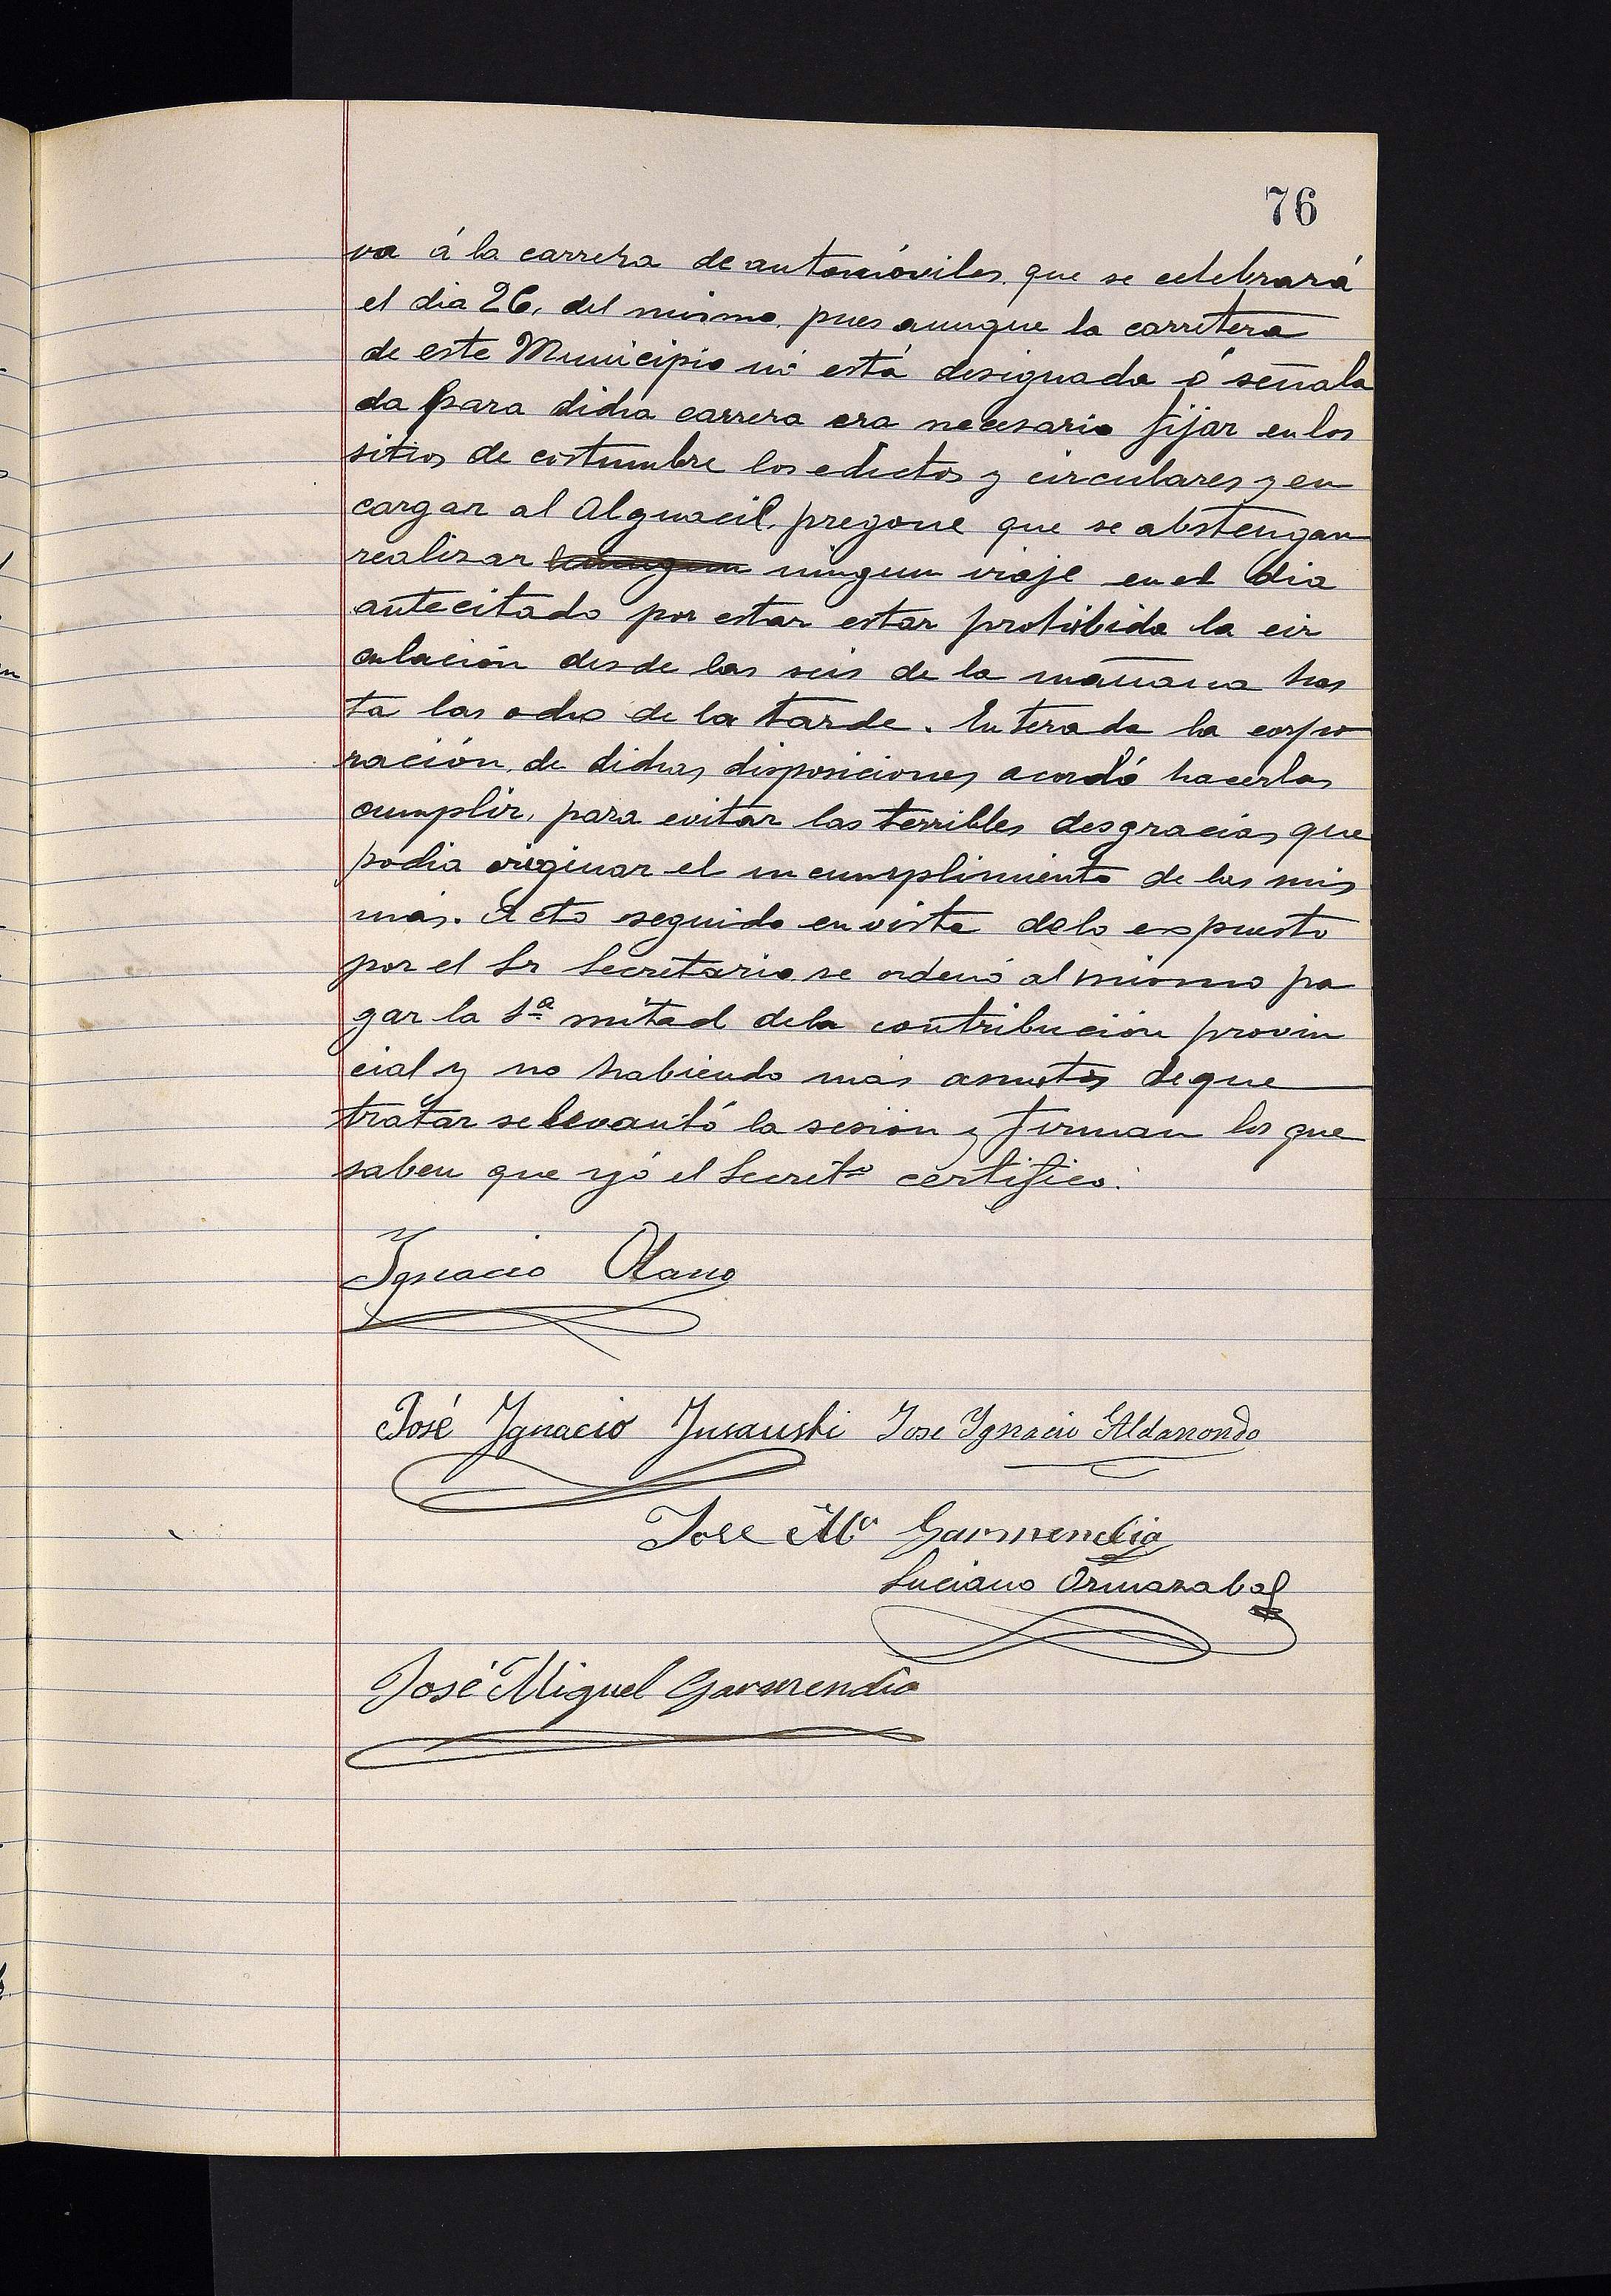 76
va á la carrera de automóviles que se celebrará
el dia 26, del mismo, pues aunque la carretera
de este Municipio ni está designada ó señala
da para dicha carrera era necesario fijar en los
sitios de costumbre los edictos y circulares y en
cargar al Alguacil pregone que se abstengan
realizar ningun viaje en el dia
antecitado por estar estar prohibida la cir
culación desde las seis de la mañana has
ta las ocho de la tarde. Enterada la corpo
ración, de dichas disposiciones acordó hacerlas
cumplir, para evitar las terribles desgracias que
podia originar el incumplimiento de las mis
mas. Acto seguido en vista de lo expuesto
por el Sr Secretario se ordenó al mismo pa
gar la 1ª mitad de la contribución provin
cial y no habiendo más asuntos de que
tratar se levantó la sesión y firman los que
saben que yó el Secretº certifico.
Ygnacio Olano
José Ygnacio Ynsausti Jose Ygnacio Aldanondo
Jose Mª Garmendia
Luciano Ormazabal
José Miguel Garmendia